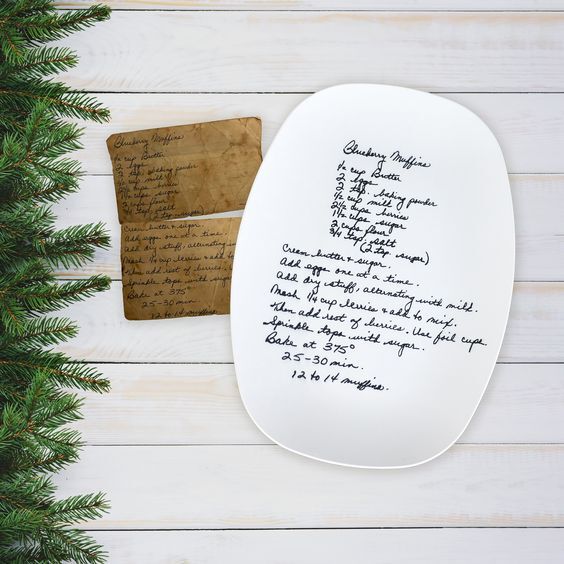 Blueberry Muffins
½ cup Butter
2 eggs
2 tsp. baking powder
½ cup milk
2½ cups berries
1¼ cups sugar
2 cups flour
¾ tsp. salt
(2 tsp sugar)
Cream butter & sugar.
Add eggs one at a time.
Add dry stuff, alternating with
Mash ¼ cup berries & add to
Then add rest of berries.
Sprinkle tops with sugar
Bake at 375°
25-30 min
12 to 14 muffins
Blueberry Muffins
½ cup Butter
2 eggs
2 tsp. baking powder
½ cup milk
2½ cups berries
1¼ cups sugar
2 cups flour
¾ tsp. salt
(2 tsp sugar)
Cream butter & sugar.
Add eggs one at a time.
Add dry stuff, alternating with milk.
Mash ¼ cup berries & add to mix.
Then add rest of berries. Use foil cups.
Sprinkle tops with sugar.
Bake at 375°
25-30 min.
12 to 14 muffins.